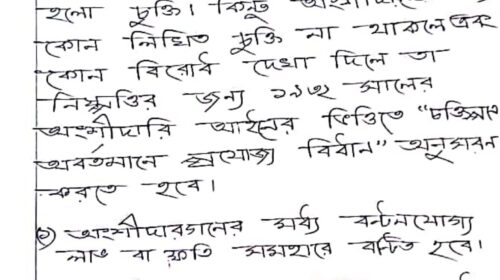 হলো চুক্তি। কিন্তু
কোন লিখিত চুক্তি না থাকলে এবং
কোন বিরোধ দেখা দিলে তা
নিষ্পত্তির জন্য ১৯৩২ সালের
অংশীদারি আইনের ভিত্তিতে "চুক্তিপত্র
অবর্তমানে প্রযোজ্য বিধান" অনুসরণ
করতে হবে।
১) অংশীদারগনের মধ্যে বন্টনযোগ্য
লাভ বা ক্ষতি সমহারে বন্টিত হবে।